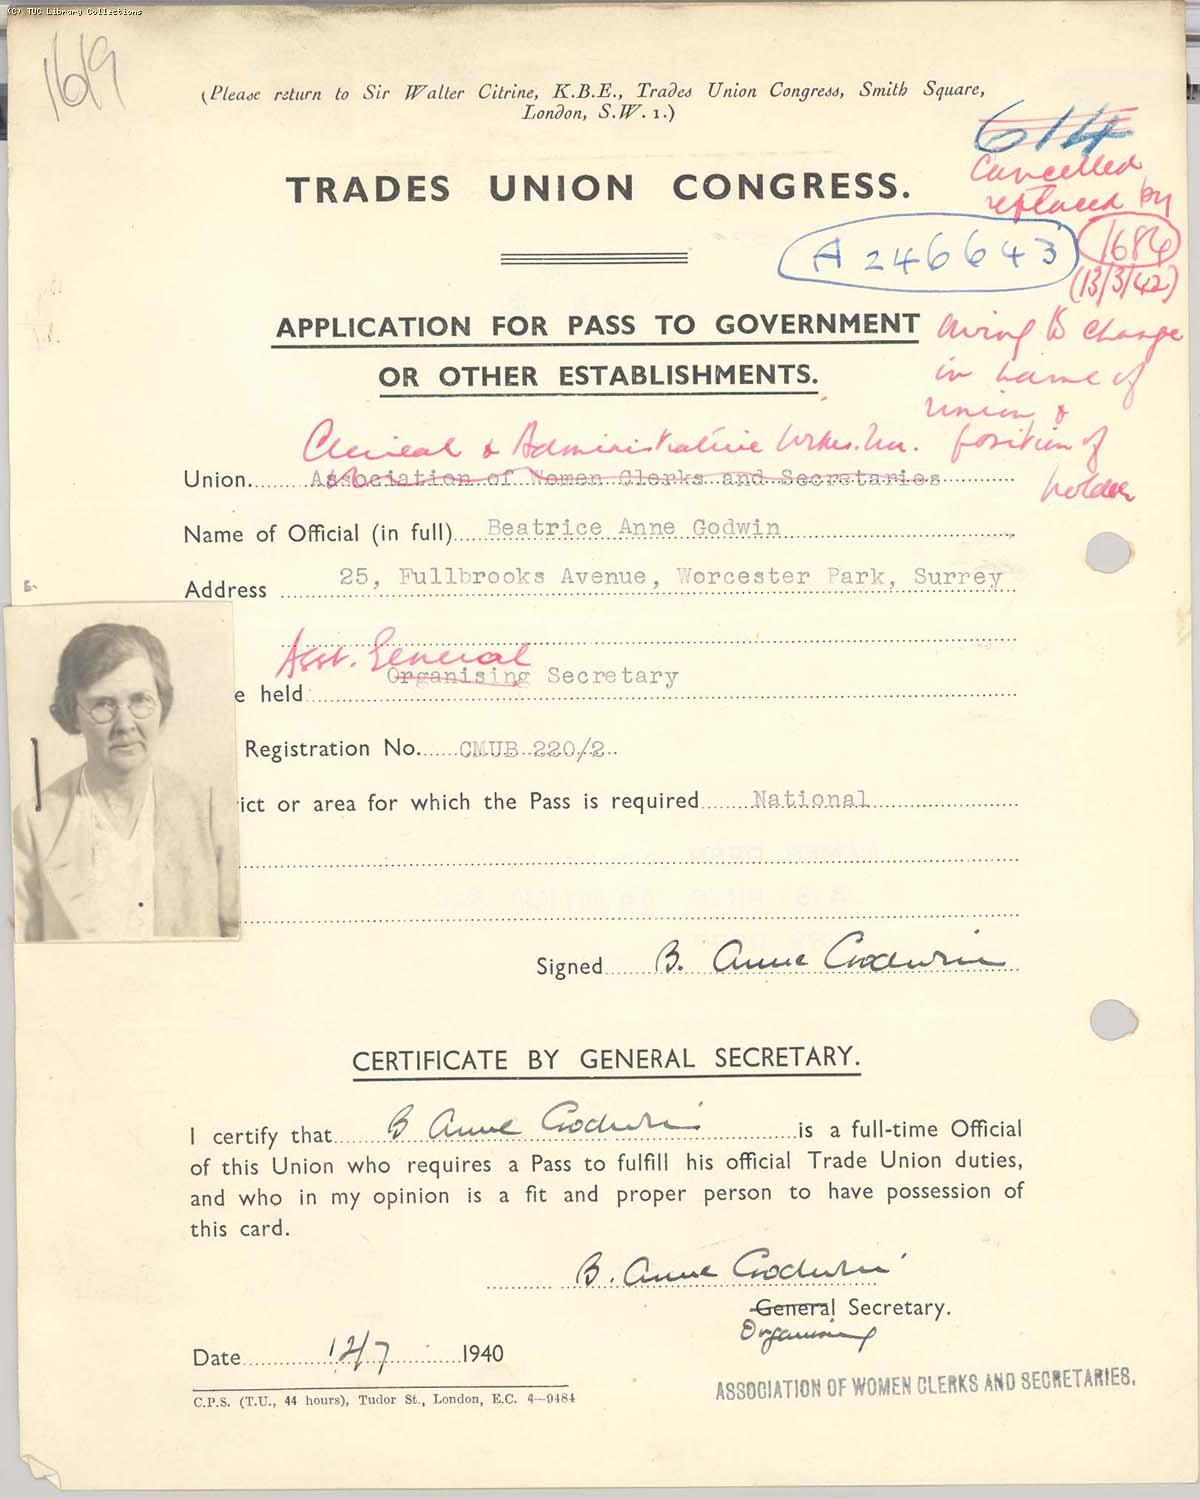 (C) TUC Library Collections
1619
(Please return to Sir Walter Citrine, K.B.E., Trades Union Congress, Smith Square,
London, S.W. 1.)
614
Cancelled
replaced by
1684
(13/3/42)
owing to change
in name of
union &
position of
holder
TRADES UNION CONGRESS.
A 246643
APPLICATION FOR PASS TO GOVERNMENT
OR OTHER ESTABLISHMENTS.
Clerical & Administrative Wkrs. Un.
Union Association of Women Clerks and Secretaries
Name of Official (in full) Beatrice Anne Godwin
Address 25, Fullbrooks Avenue, Worcester Park, Surrey
Asst. General
e held Organising Secretary
Registration No. CMUB 220/2
ict or area for which the Pass is required National
Signed B. Anne Godwin
CERTIFICATE BY GENERAL SECRETARY.
I certify that B Anne Godwin is a full-time Official
of this Union who requires a Pass to fulfill his official Trade Union duties,
and who in my opinion is a fit and proper person to have possession of
this card.
B. Anne Godwin
General Secretary.
Organising
Date 12/7 1940
C.P.S. (T.U., 44 hours), Tudor St., London, E.C. 4—9484
ASSOCIATION OF WOMEN CLERKS AND SECRETARIES.